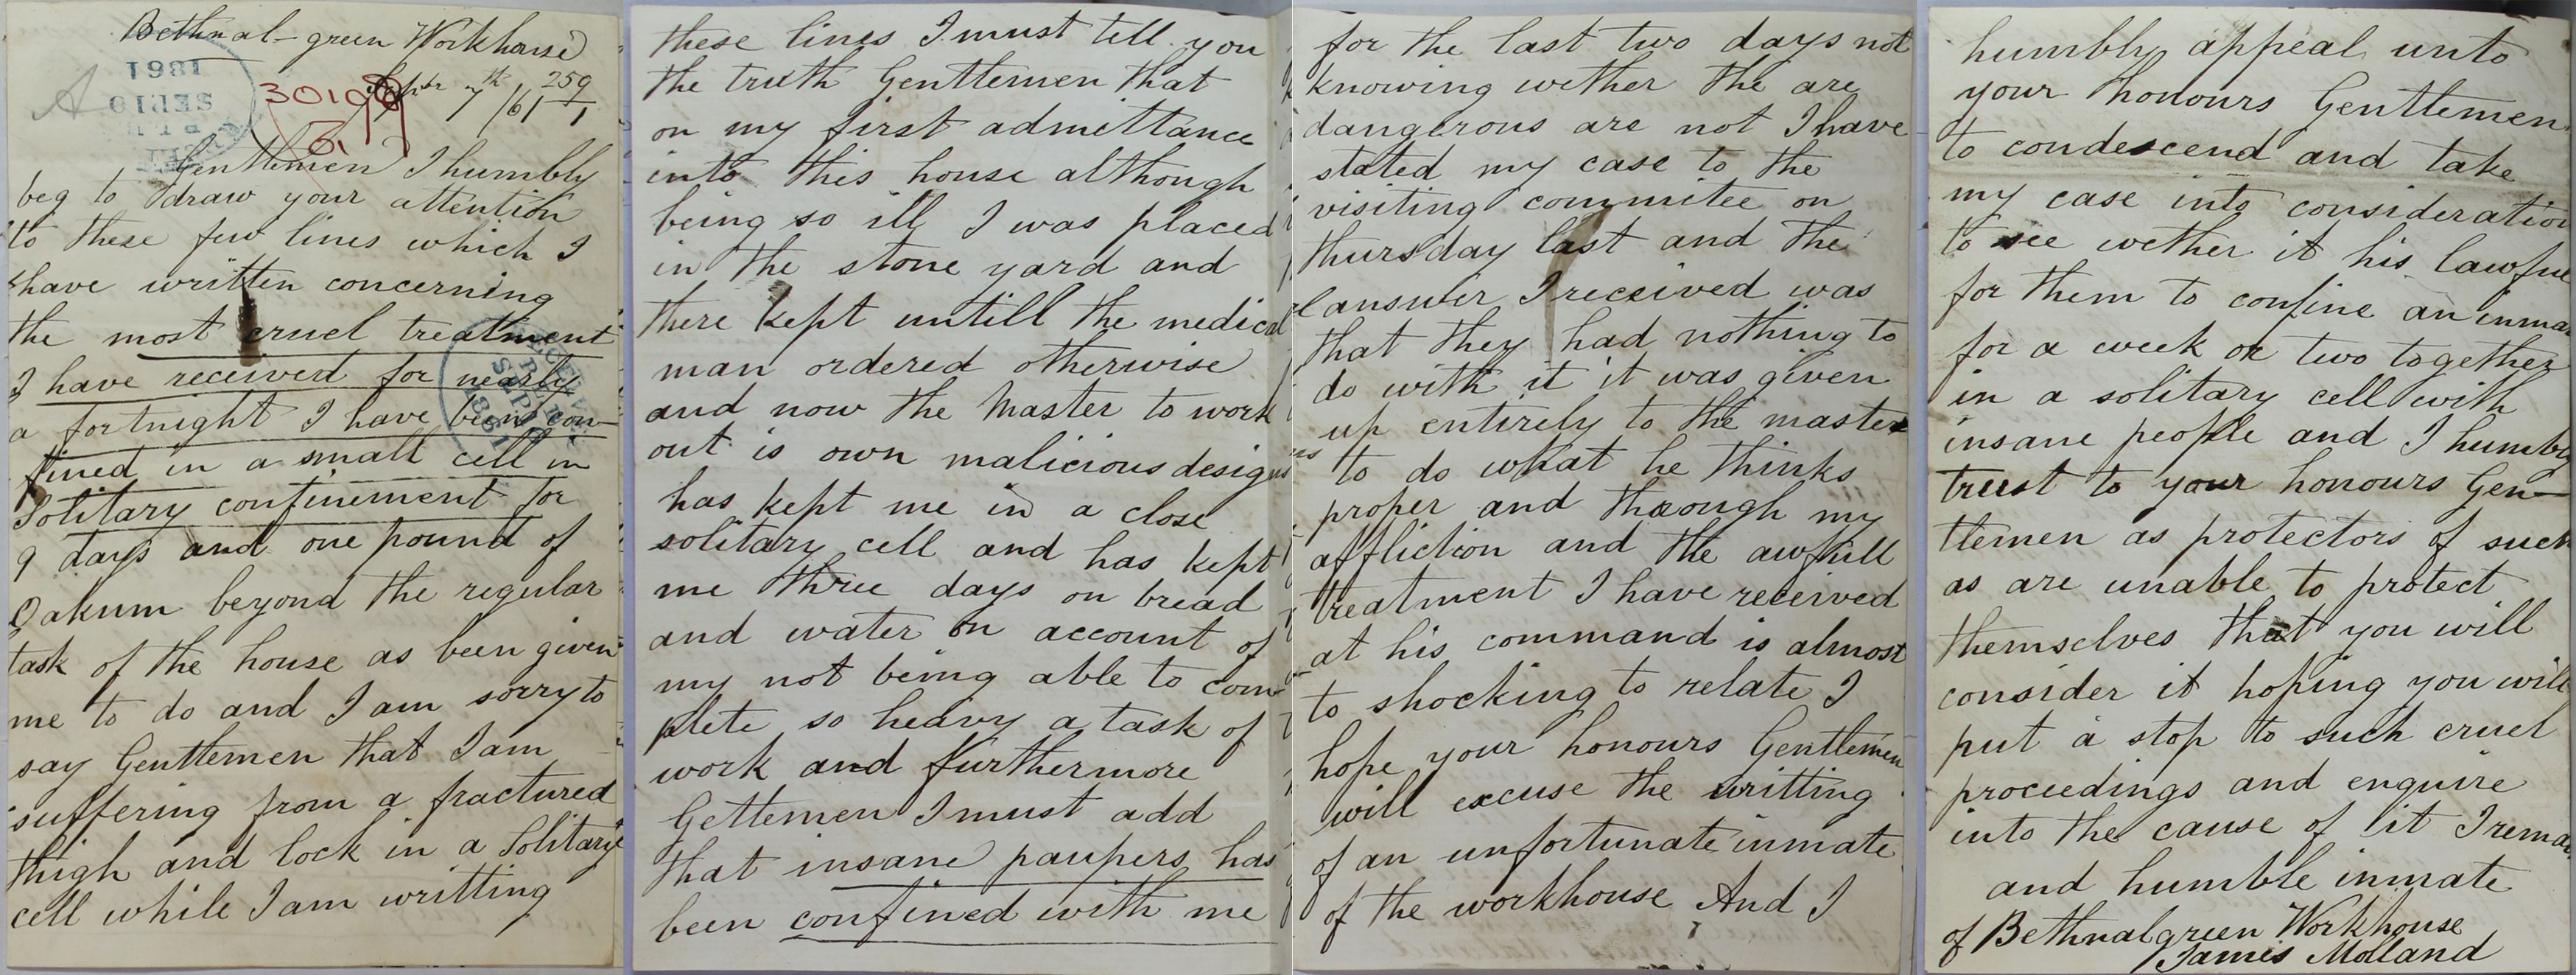 Bethnal-green Workhouse
Septbr 7th /61
259
1
A
1861
SEP 10
30108
61
Gentlemen I humbly
beg to draw your attention
to these few lines which I
have written concerning
the most cruel treatment
I have received for nearly
a fortnight I have been con-
fined in a small cell in
Solitary confinement for
9 days and one pound of
Oakum beyond the regular
task of the house as been given
me to do and I am sorry to
say Gentlemen that I am
suffering from a fractured
thigh and lock in a Solitary
cell while I am writting
these lines I must tell you
the truth Gentlemen that
on my first admittance
into this house although
being so ill I was placed
in the stone yard and
there kept untill the medical
man ordered otherwise
and now the Master to work
out is own malicious designs
has kept me in a close
solitary cell and has kept
me three days on bread
and water on account of
my not being able to com-
plete so heavy a task of
work and furthermore
Gettemen I must add
that insane paupers has
been confined with me
for the last two days not
knowing wether the are
dangerous are not I have
stated my case to the
visiting commitee on
thursday last and the
answer I received was
that they had nothing to
do with it it was given
up entirely to the master
to do what he thinks
proper and through my
affliction and the awfull
treatment I have received
at his command is almost
to shocking to relate I
hope your honours Gentlemen
will excuse the writting
of an unfortunate inmate
of the workhouse And I
humbly appeal unto
your honours Gentlemen
to condescend and take
my case into consideration
to see wether it his lawful
for them to confine an inma
for a week or two together
in a solitary cell with
insane people and I humbly
trust to your honours Gen-
tlemen as protectors of such
as are unable to protect
themselves that you will
consider it hoping you will
put a stop to such cruel
proceedings and enquire
into the cause of it I rema
and humble inmate
of Bethnalgreen Workhouse
James Molland